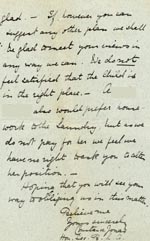 glad. – If however you can
suggest any other plan we shall
be glad to meet your views in
any way we can. We do not
feel satisfied that the child is
in the right place. –
also would prefer home
work to the Laundry, but as we
do not pay for her we feel we
have no right to ask you to alter
her position. –
Hoping that you will see your
way to obliging us in this matter
Believe me
Yours sincerely
Hon. Sec.